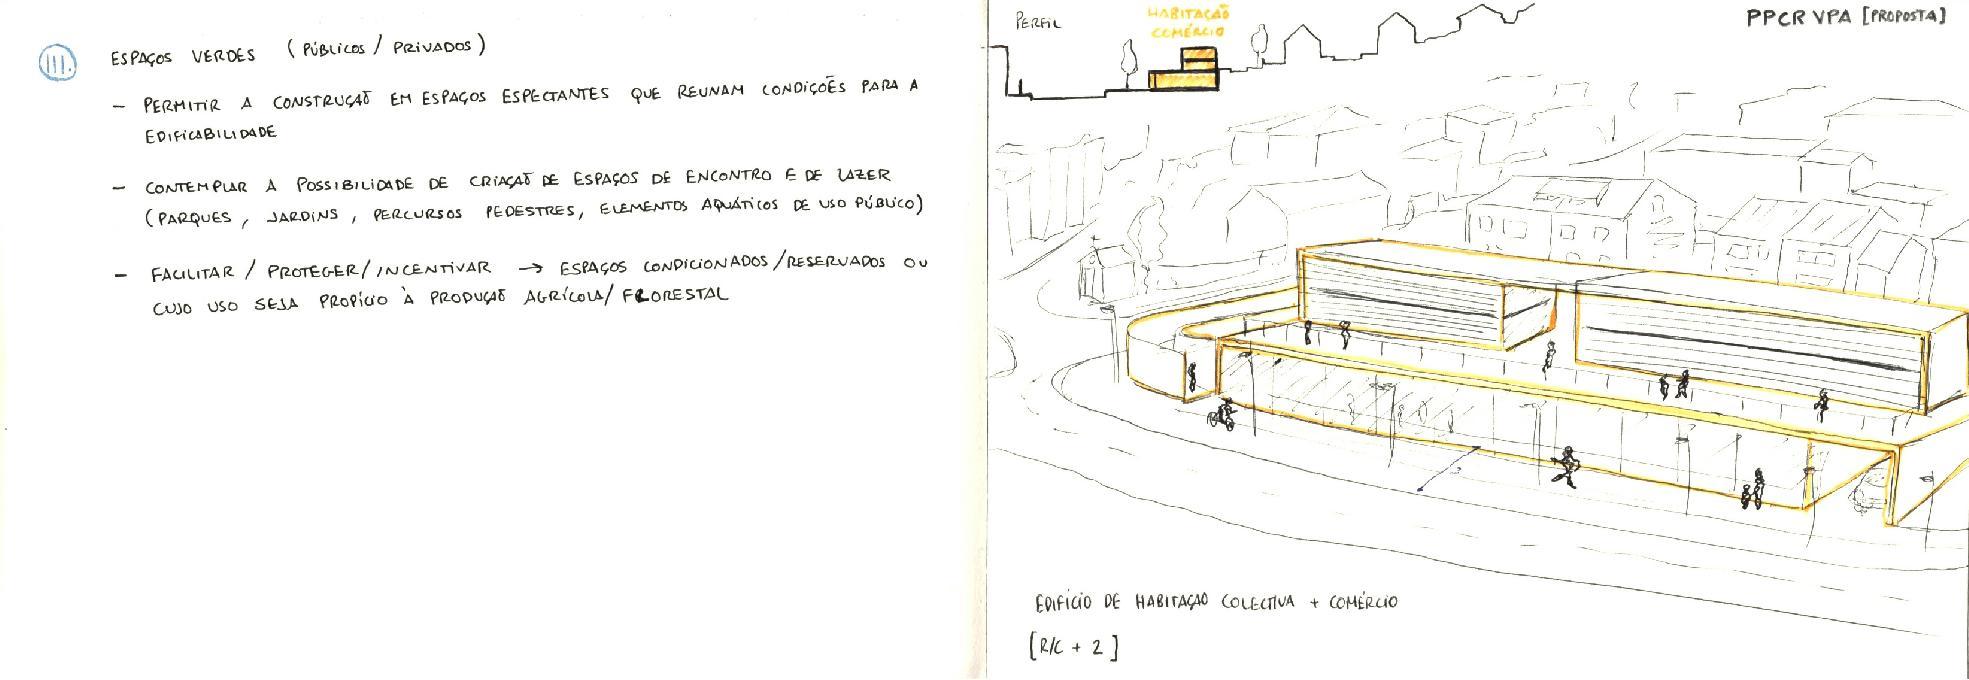 III.
ESPAÇOS VERDES (PÚBLICOS / PRIVADOS)
- PERMITIR A CONSTRUÇÃO EM ESPAÇOS ESPECTANTES QUE REUNAM CONDIÇÕES PARA A
EDIFICABILIDADE
- CONTEMPLAR A POSSIBILIDADE DE CRIAÇÃO DE ESPAÇOS DE ENCONTRO E DE LAZER
(PARQUES, JARDINS, PERCURSOS PEDESTRES, ELEMENTOS AQUÁTICOS DE USO PÚBLICO)
- FACILITAR / PROTEGER / INCENTIVAR → ESPAÇOS CONDICIONADOS/RESERVADOS OU
CUJO USO SEJA PROPÍCIO À PRODUÇÃO AGRÍCOLA/ FLORESTAL
PERFIL
HABITAÇÃO
COMÉRCIO
PPCR VPA [PROPOSTA]
EDIFÍCIO DE HABITAÇÃO COLECTIVA + COMÉRCIO
[R/C + 2]